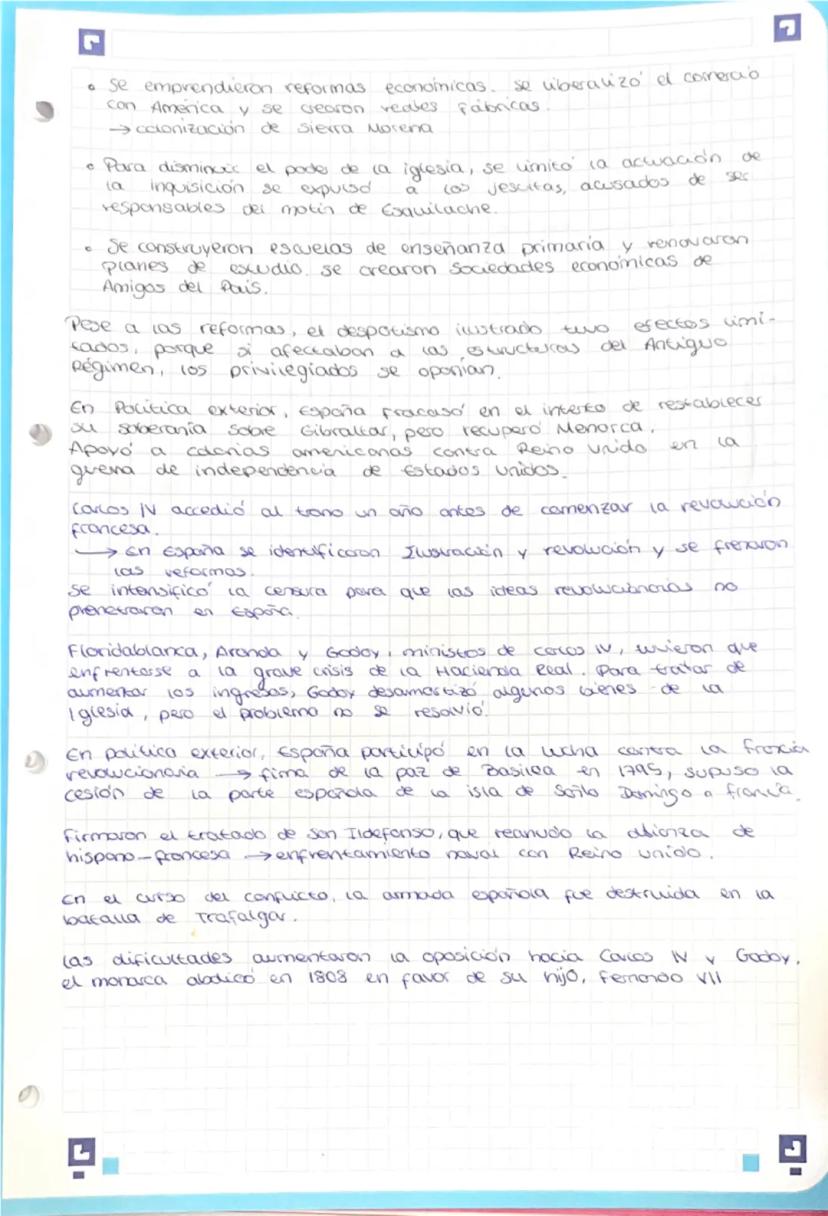 • Se emprendieron reformas económicas. Se liberalizó el comercio
con América y se crearon reales fábricas.
→ colonización de Sierra Morena
• Para disminuir el poder de la iglesia, se limitó la actuación de
la inquisición se expulsó a los jesuitas, acusados de ser
responsables del motín de Esquilache.
• Se construyeron escuelas de enseñanza primaria y renovaron
planes de estudio. Se crearon Sociedades económicas de
Amigos del País.
Pese a las reformas, el despotismo ilustrado tuvo efectos limi-
tados, porque si afectaban a las estructuras del Antiguo
Régimen, los privilegiados se oponían.
En Política exterior, España fracasó en el intento de restablecer
su soberanía sobre Gibraltar, pero recuperó Menorca.
Apoyó a colonias americanas contra Reino Unido en la
guerra de independencia de Estados Unidos.
Carlos IV accedió al trono un año antes de comenzar la revolución
francesa.
→ En España se identificaron Ilustración y revolución y se frenaron
las reformas.
Se intensificó la censura para que las ideas revolucionarias no
prenetraran en España.
Floridablanca, Aranda y Godoy, ministros de Carlos IV, tuvieron que
enfrentarse a la grave crisis de la Hacienda Real. Para tratar de
aumentar los ingresos, Godoy desamortizó algunos bienes de la
Iglesia, pero el problema no se resolvió.
En política exterior, España participó en la lucha contra la Francia
revolucionaria → firma de la paz de Basilea en 1795, supuso la
cesión de la parte española de la isla de Santo Domingo a Francia.
Firmaron el tratado de San Ildefonso, que reanudó la alianza de
hispano-francesa → enfrentamiento naval con Reino Unido.
En el curso del conflicto, la armada española fue destruida en la
batalla de Trafalgar.
Las dificultades aumentaron la oposición hacia Carlos IV y Godoy,
el monarca abdicó en 1808 en favor de su hijo, Fernando VII